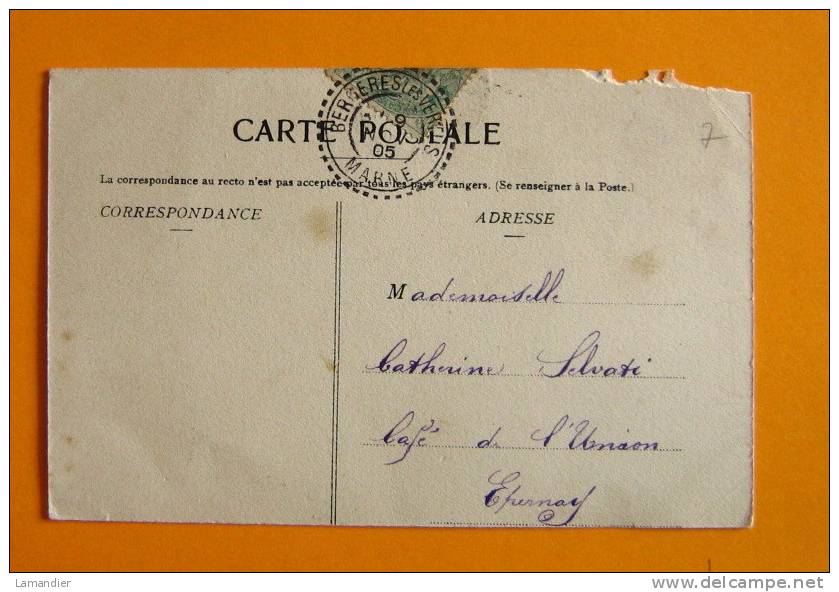 BERGERES LES VERTUS
9
05
MARNE
CARTE POSTALE
7
La correspondance au recto n'est pas acceptée par tous les pays étrangers. (Se renseigner à la Poste.)
CORRESPONDANCE
ADRESSE
Mademoiselle
Catherine Selvati
Café de l'Union
Epernay
Lamandier
delcampe.net